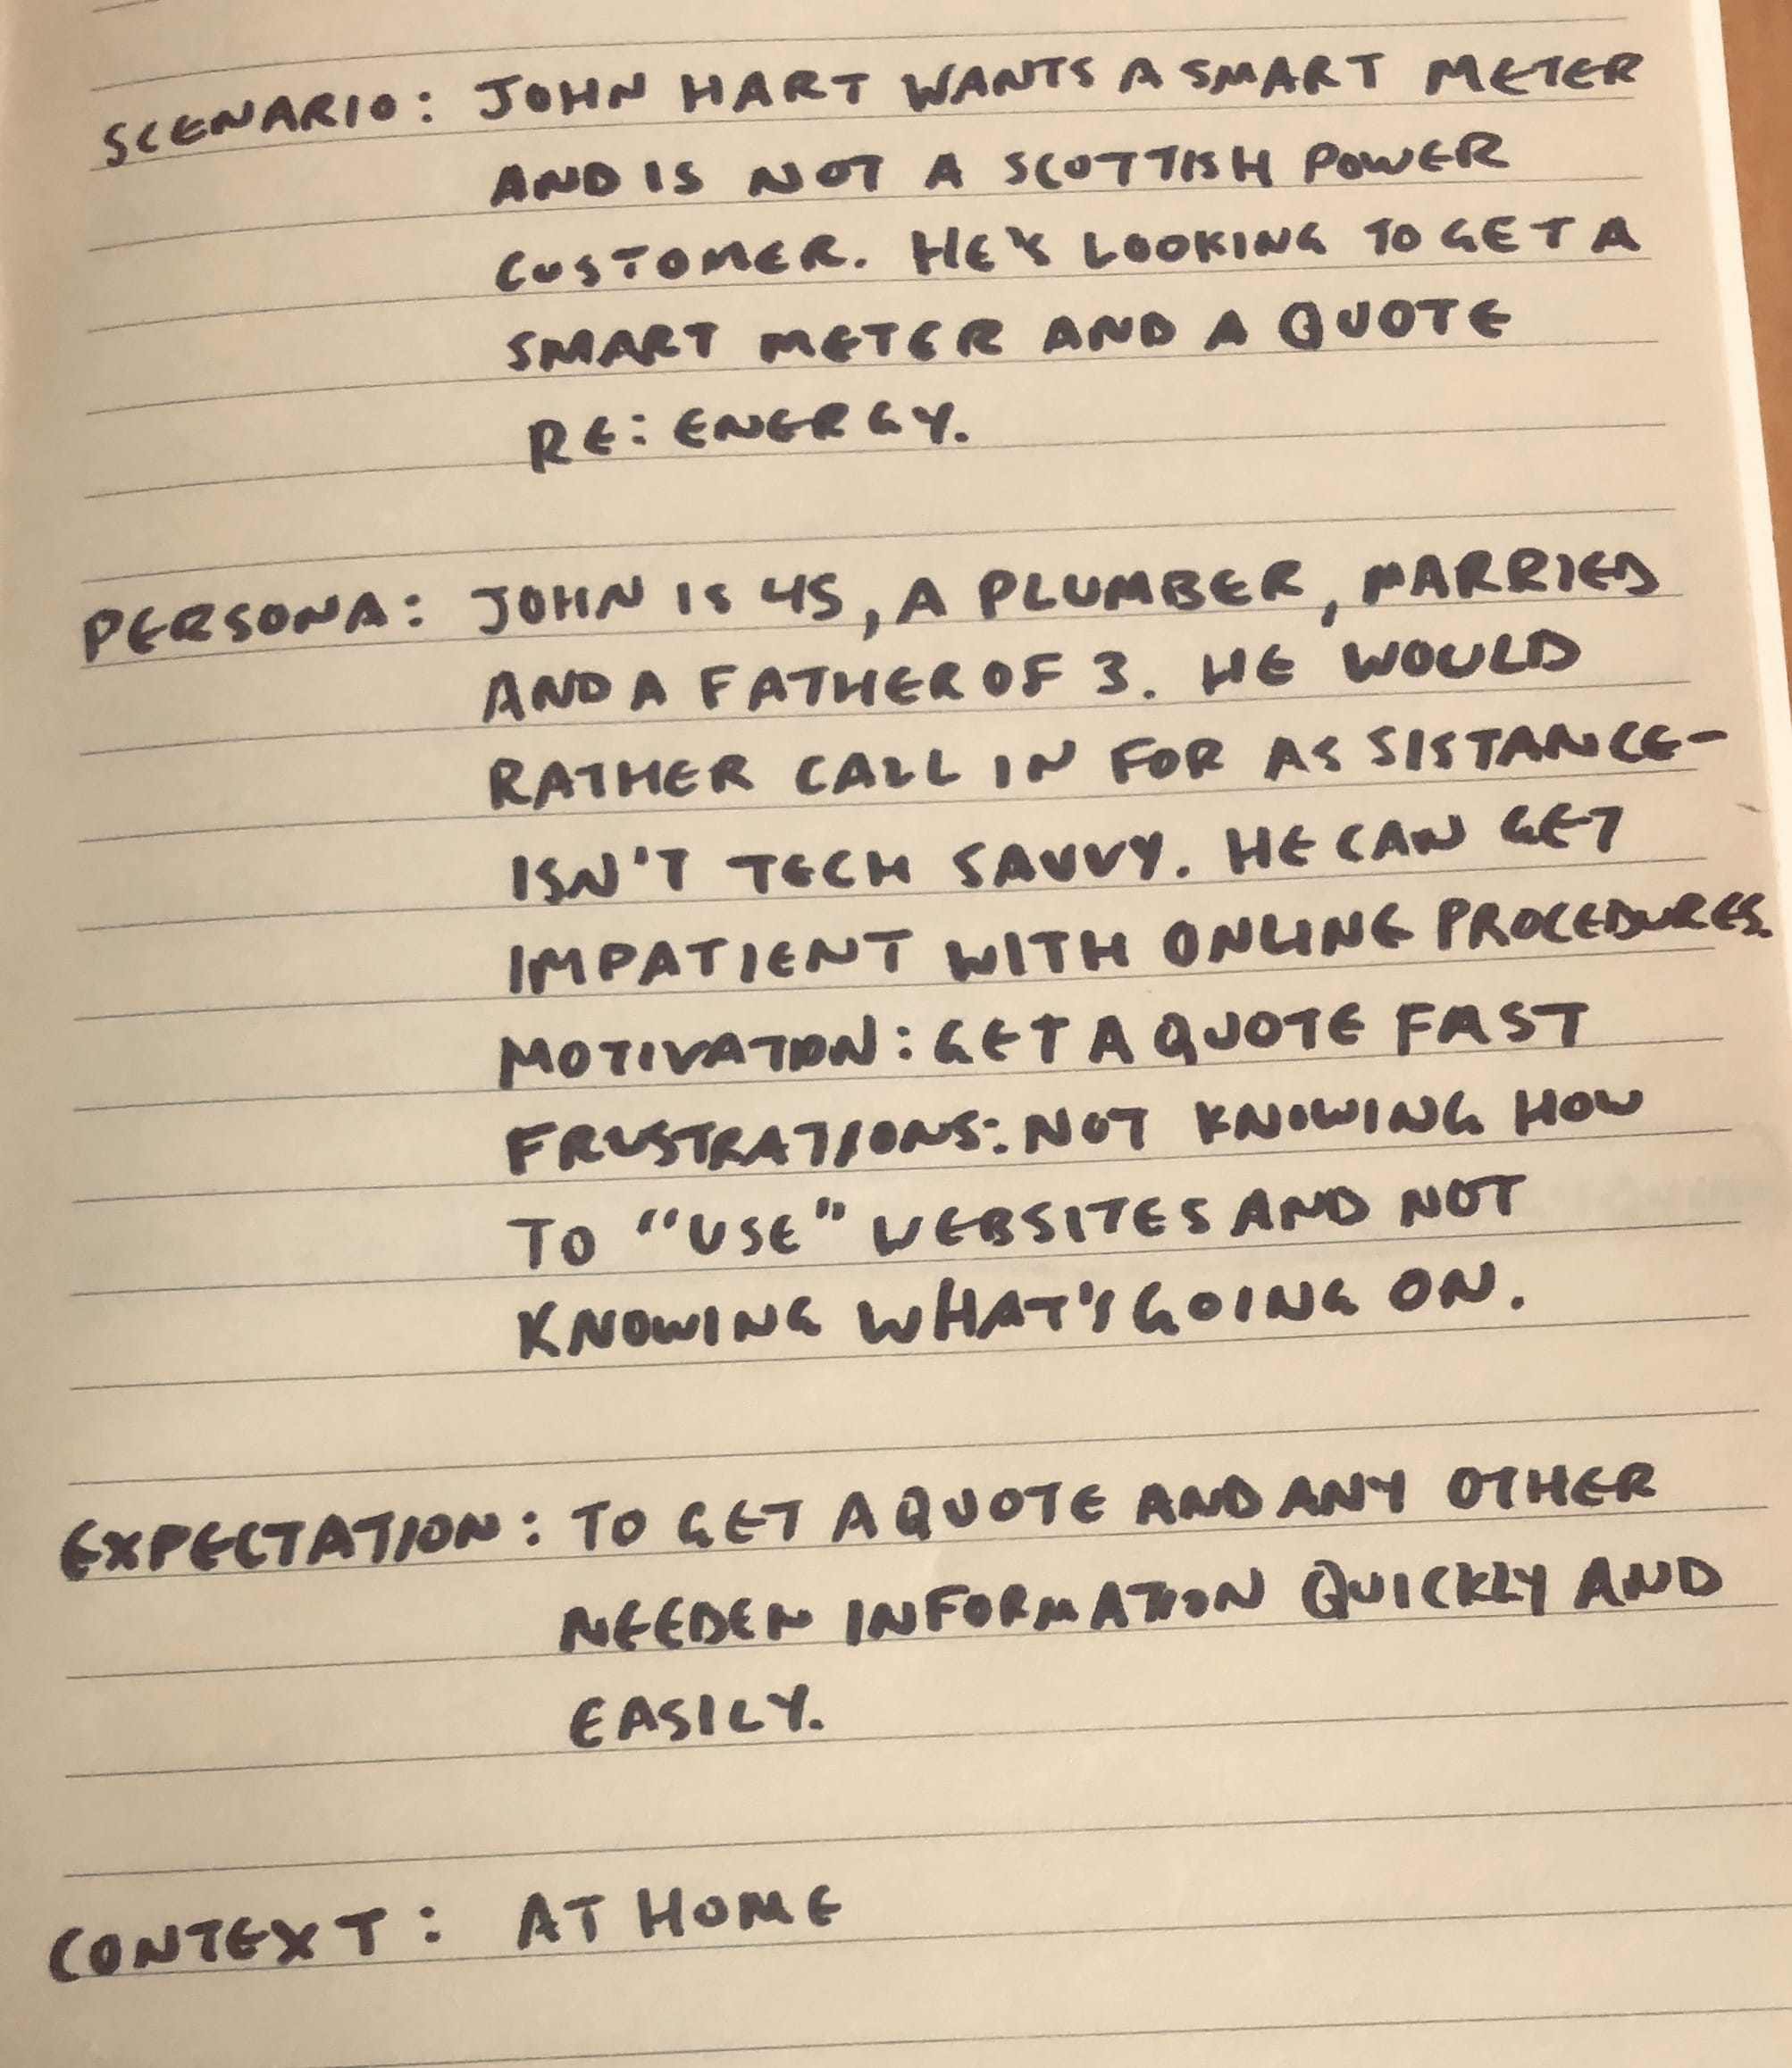 SCENARIO: JOHN HART WANTS A SMART METER
AND IS NOT A SCOTTISH POWER
CUSTOMER. HE'S LOOKING TO GET A
SMART METER AND A QUOTE
RE: ENERGY.
PERSONA: JOHN IS 45, A PLUMBER, MARRIED
AND A FATHER OF 3. HE WOULD
RATHER CALL IN FOR ASSISTANCE-
ISN'T TECH SAVVY. HE CAN GET
IMPATIENT WITH ONLINE PROCEDURES.
MOTIVATION: GET A QUOTE FAST
FRUSTRATIONS: NOT KNOWING HOW
TO "USE" WEBSITES AND NOT
KNOWING WHAT'S GOING ON.
EXPECTATION: TO GET A QUOTE AND ANY OTHER
NEEDEN INFORMATION QUICKLY AND
EASILY.
CONTEXT: AT HOME